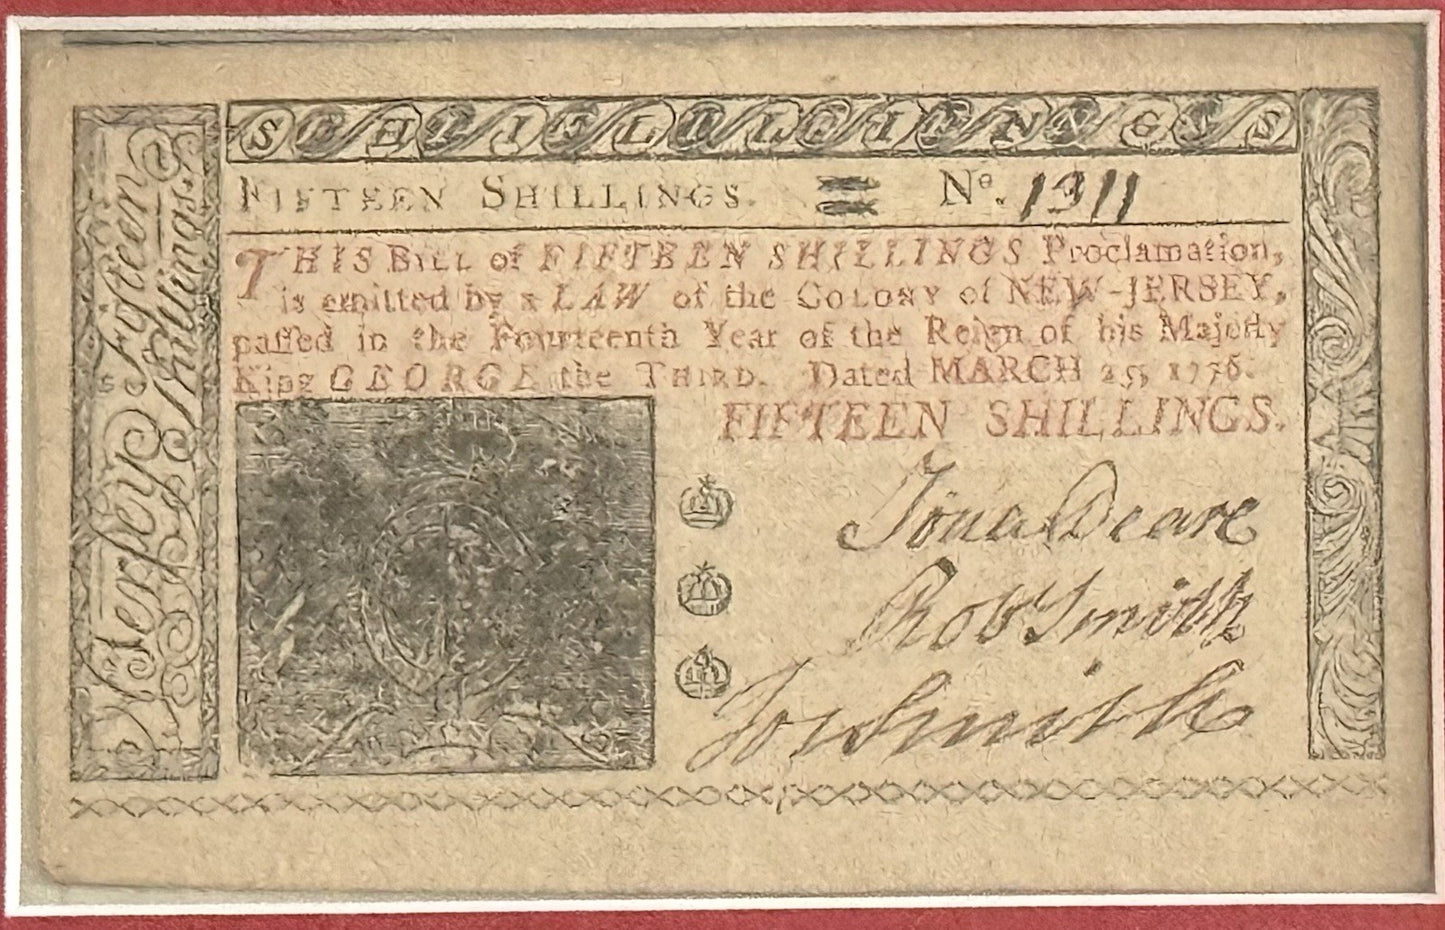 SHILLINGS
FIFTEEN SHILLINGS. No. 1311
THIS BILL of FIFTEEN SHILLINGS Proclamation,
is emitted by a LAW of the COLONY of NEW-JERSEY,
paſſed in the Fourteenth Year of the Reign of his Majeſty
King GEORGE the THIRD. Dated MARCH 25, 1776.
FIFTEEN SHILLINGS.
Jona Deare
Rob Smith
Jos Smith
Jerſey Fifteen
Shillings